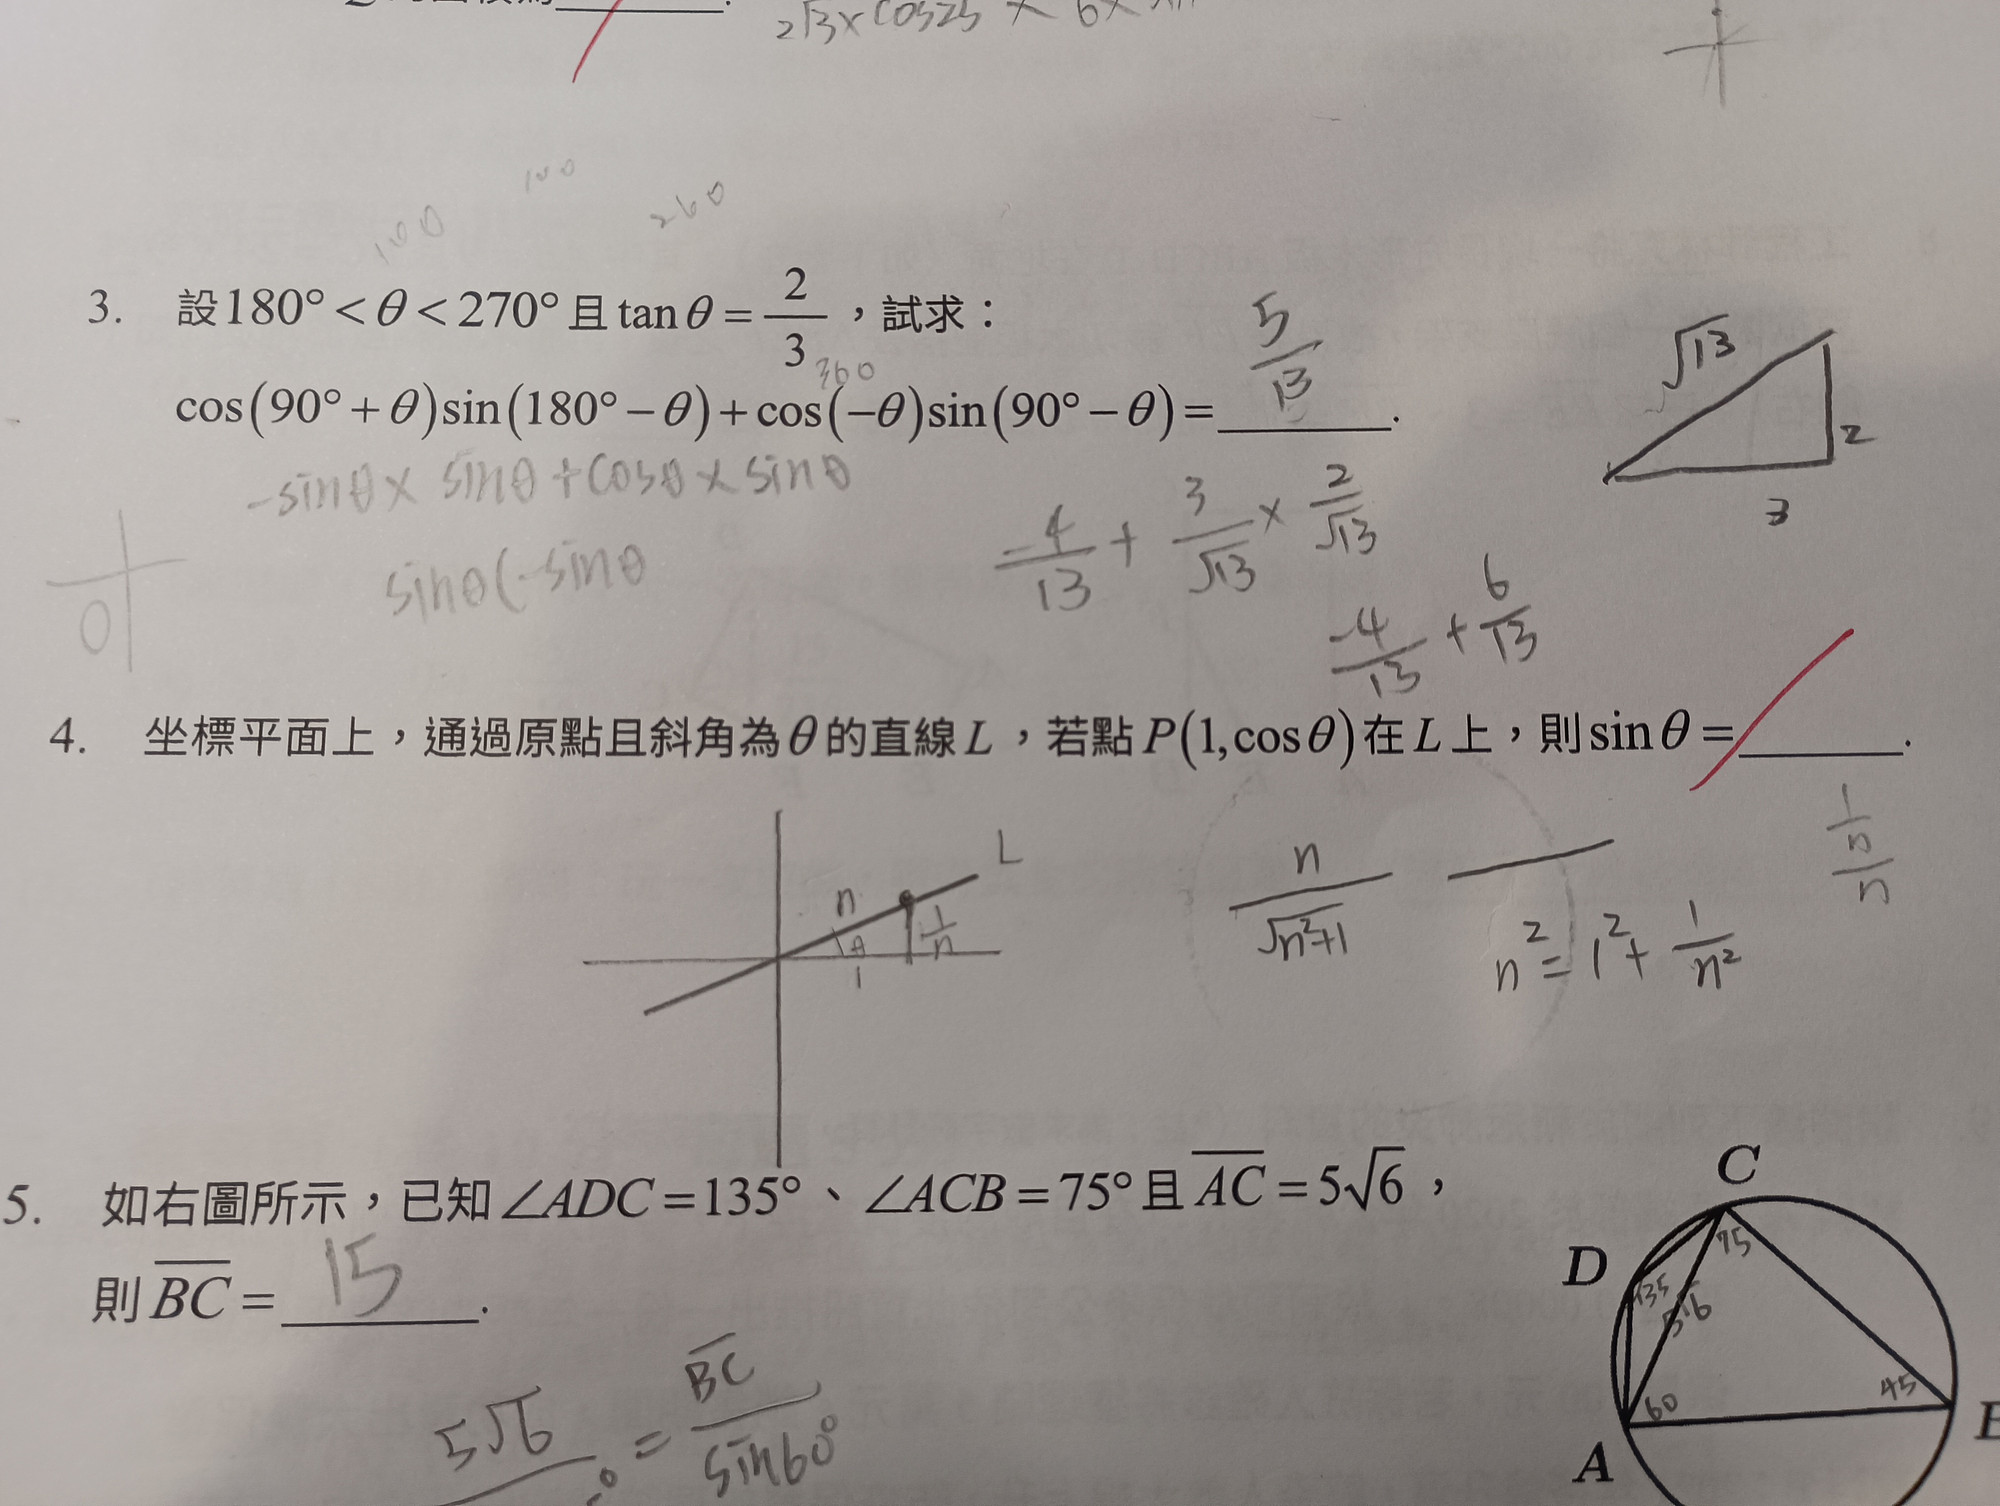 2√3×cos25 × 6×
100
100
260
3. 設180°<θ<270°且tanθ=2/3，試求：
360
cos(90°+θ)sin(180°−θ)+cos(−θ)sin(90°−θ)=5/13.
√13
2
3
-sinθ× sinθ+cosθ×sinθ
-4/13 + 3/√13 × 2/√13
sinθ(-sinθ
-4/13 + 6/13
4. 坐標平面上，通過原點且斜角為θ的直線L，若點P(1,cosθ)在L上，則sinθ=______.
L
n
θ
1
1/n
n/√n²+1
n²=1²+1/n²
1/n/n
5. 如右圖所示，已知∠ADC=135°、∠ACB=75°且AC=5√6，
則BC=15.
5√6 = BC/sin60°
C
75
D
135
5√6
60
45
A